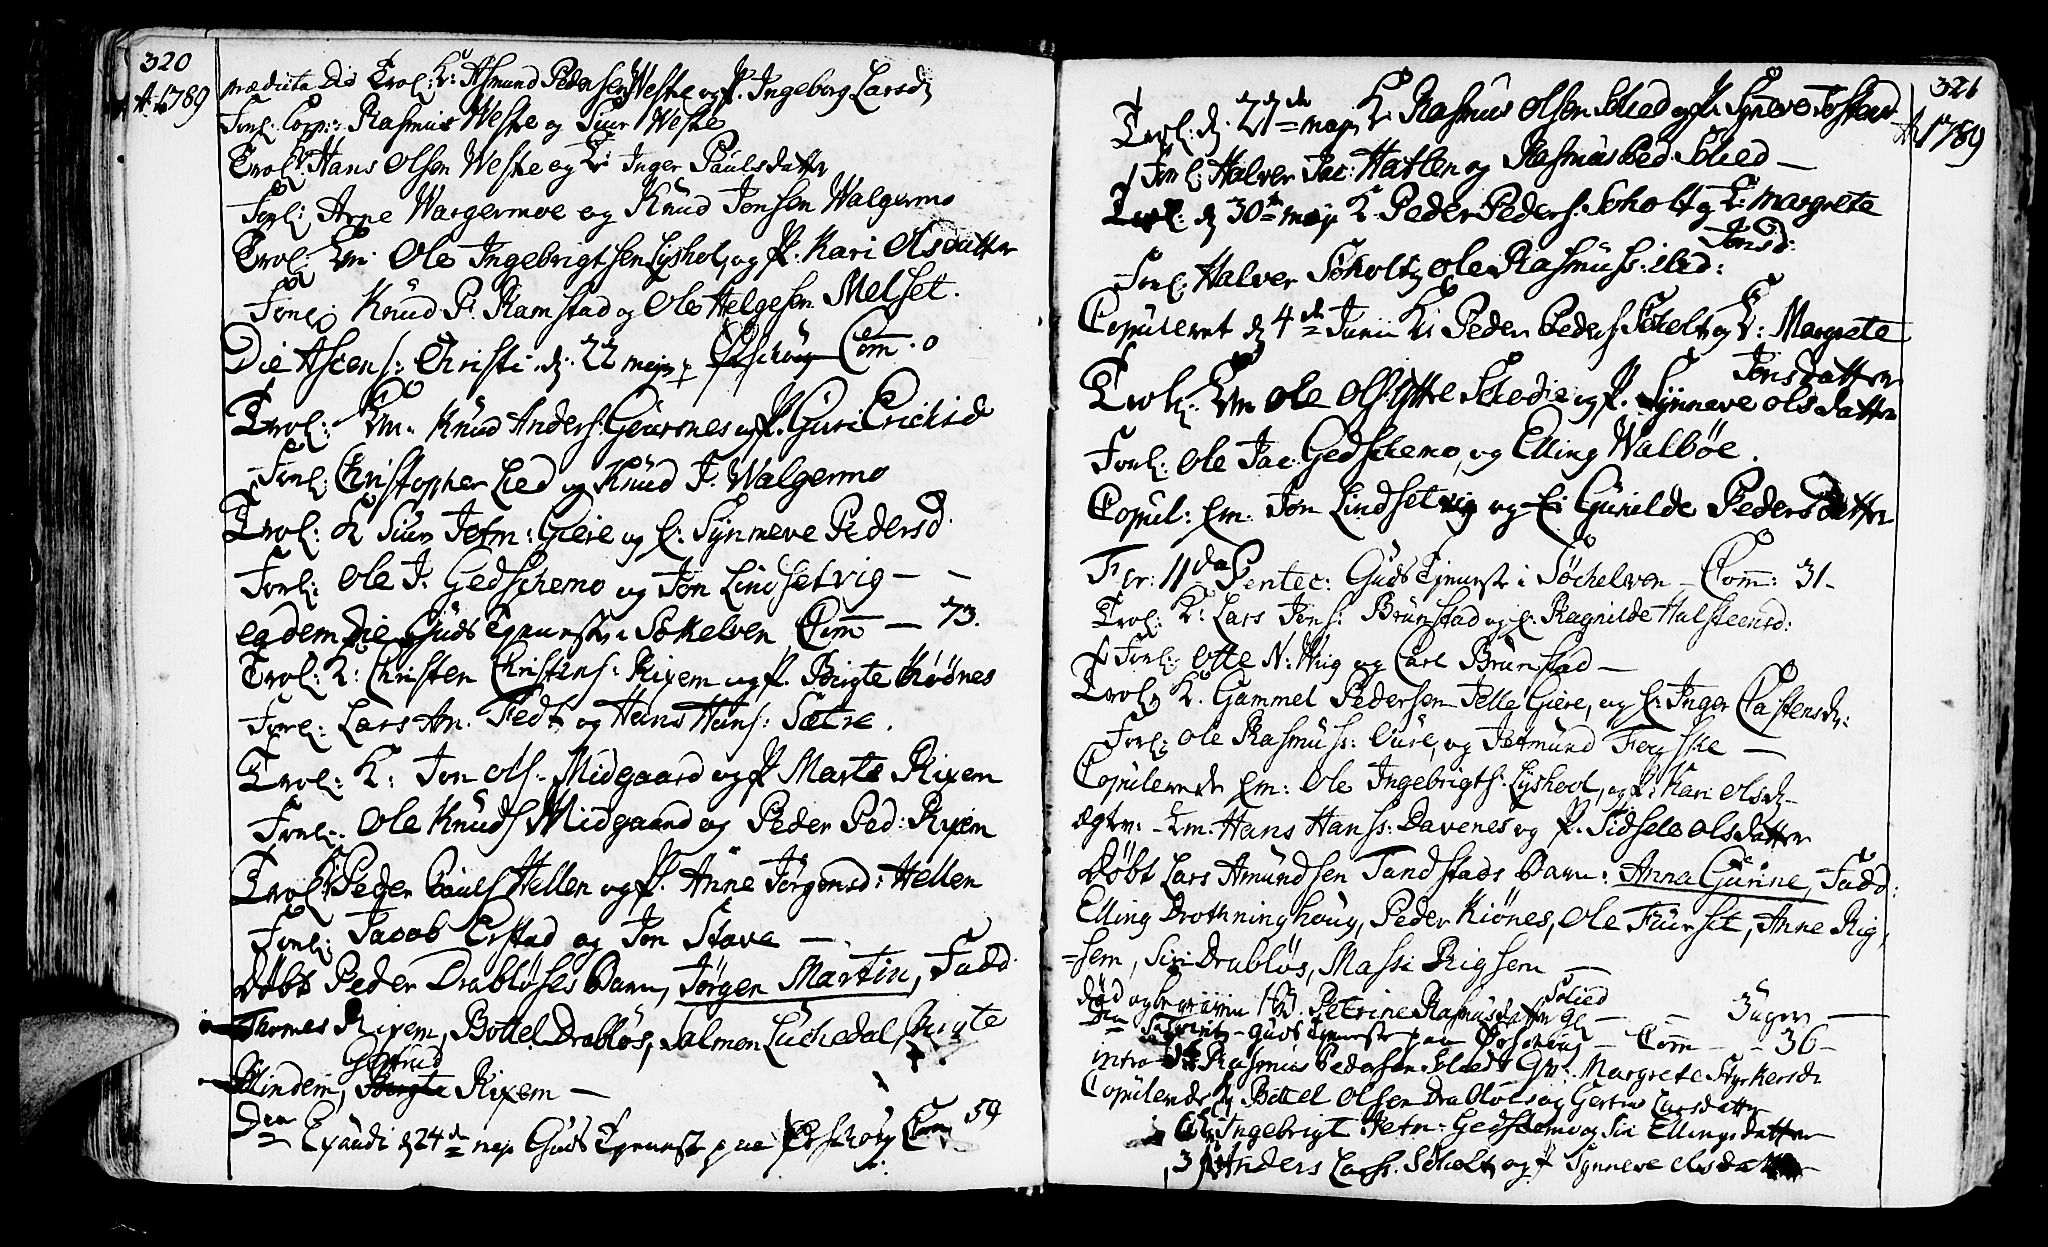 320
Ao 1789
prædicta Die Trol: K: Asmund Pedersen Weske og P. Ingeborg Larsd
Forl: Corp: Rasmus Weske og Siur Weske
Trol: Hans Olsen Weske og K: Inger Paulsdatter
Forl: Arne Wargermoe og Knud Jonsen Walgermo
Trol: Em: Ole Ingebrigtsen Lyshol, og P. Kari Olsdatter
Forl: Knud P. Ramstad og Ole Helgesen Melset.
Die Ascens: Christi d: 22 maji Ørschoug Com: 0
Trol: Em. Knud Anders: Giursnes og P. Guri Erichsd
Forl: Christopher Lied og Knud J. Walgermo
Trol: K Siur Jetm: Giere og P: Synneve Pedersd.
Forl: Ole J: Gedschemo og Jon Lindsetvig - -
eadem Die Guds Tjeneste i Søkelven Com — 73.
Trol: K: Christen Christens: Rixem og P. Birgte Kiønes
Forl: Lars An. Fedt og Hans Hans: Sætre.
Trol: K: Jon Ols: Midgaard og P Marte Rixem
Forl: Ole Knuds Midgaard og Peder Ped: Rixem
Trol: Peder Pauls Hellen og P. Anne Jørgensd: Hellen
Forl: Jacob Erstad og Jon Stave —
Døbt Peder Drabløses Barn, Jørgen Martin, Fadd:
Thomes Rixem, Bottel Drabløs, Salmon Luchedal, Birgte
Gertrud
Blindem, Birgte Rixem —
Den Exaudi d 24de maji Guds Tjeneste paa Ørschoug Com 59
321
Ao 1789
Trol: d. 27de maji K: Rasmus Olsen Solied og P. Synneve Tostensd
Forl: Halver Jac: Hatlen og Rasmus Ped: Solied —
Trol: d 30te maji K. Peder Peders: Soholt og K: Margrete
Jonsd:
Forl: Halver Soholt, Ole Rasmuss: ibid:
Copuleret d 4de Junii K: Peder Peders Soholt og K: Margrete
Jonsdatter
Trol: Em Ole Ols: Ytre Skodie og P. Synneve Olsdatter
Forl: Ole Jac: Gedschemo, og Elling Walbøe.
Copul: Em. Jon Lindsetvig og E: Gunilde Pedersdatter
Fer: IIda Pentec: Guds Tjeneste i Søchelven — Com: 31 -
Trol: K: Lars Jons: Brunstad og P. Ragnilde Halsteensd:
Forl: Otte N: Wiig og Carl Brunstad —
Trol: K. Gammel Pedersen Jelle Giere, og P: Inger Castensd:
Forl: Ole Rasmuss: Aure, og Jetmund Feyske —
Copulerede Em: Ole Ingebrigts: Lyshool, og P: Kari Olsd-
ægtev: - Em. Hans Hanss: Davenes og P. Sidsele Olsdatter
Døbt Lars Amundsen Tandstads Barn: Anna Gurine, Fadd:
Elling Drothninghoug, Peder Kiønes, Ole Fuurset, Anne Rig-
=sem, Siri Drabløs, Massi Rigsem —
Solied
død og begraven Petrine Rasmusdatter — — 3 uger —
Den Trinit — Guds Tjeneste paa Ørschoug — Com — — 36 -
intro Rasmus Pedersen Solied Margrete Styrkersd:
Copulerede K: Bottel Olsen Drabløs og Gertru Larsdatter
Ingebrigt Jetm: Gedschemo og Siri Ellingsdatter
3 Anders Lars. Soholt og P Synneve Olsdatter